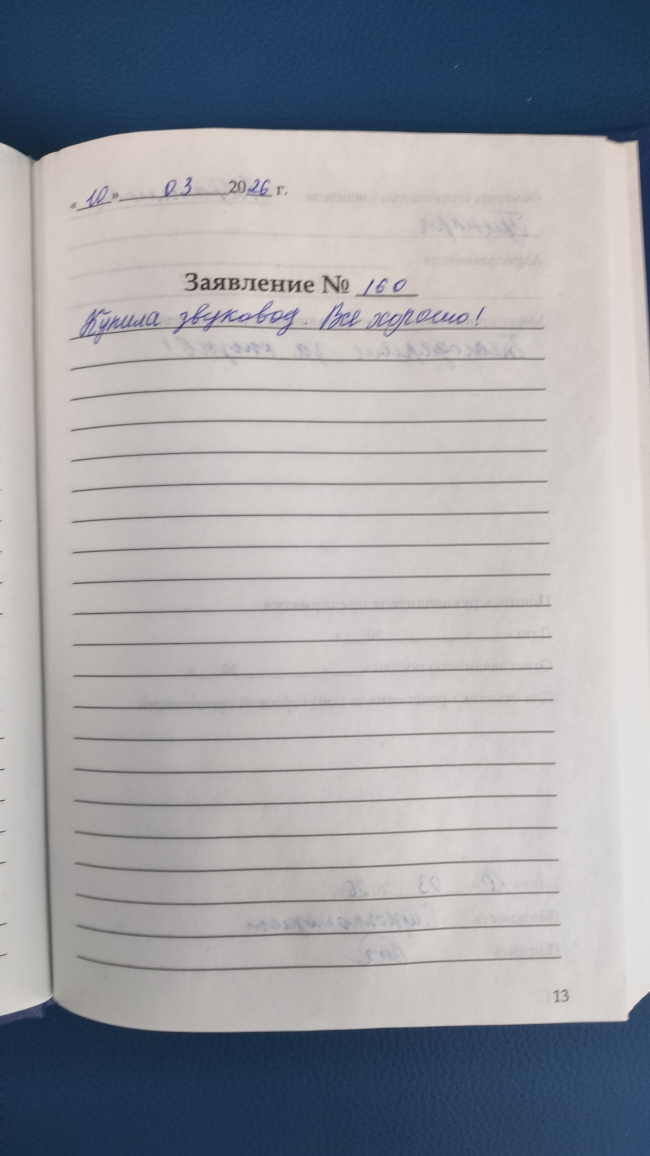 « 10 » 03 2026 г.
Заявление № 160
Купила звуковод Все хорошо!
13